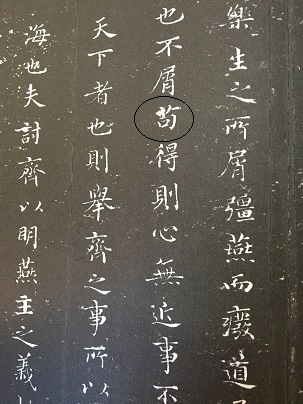 樂生之所屑彊燕而癈道
也不屑苟得則心無近事不
天下者也則舉齊之事所以
海也夫討齊以明燕主之義